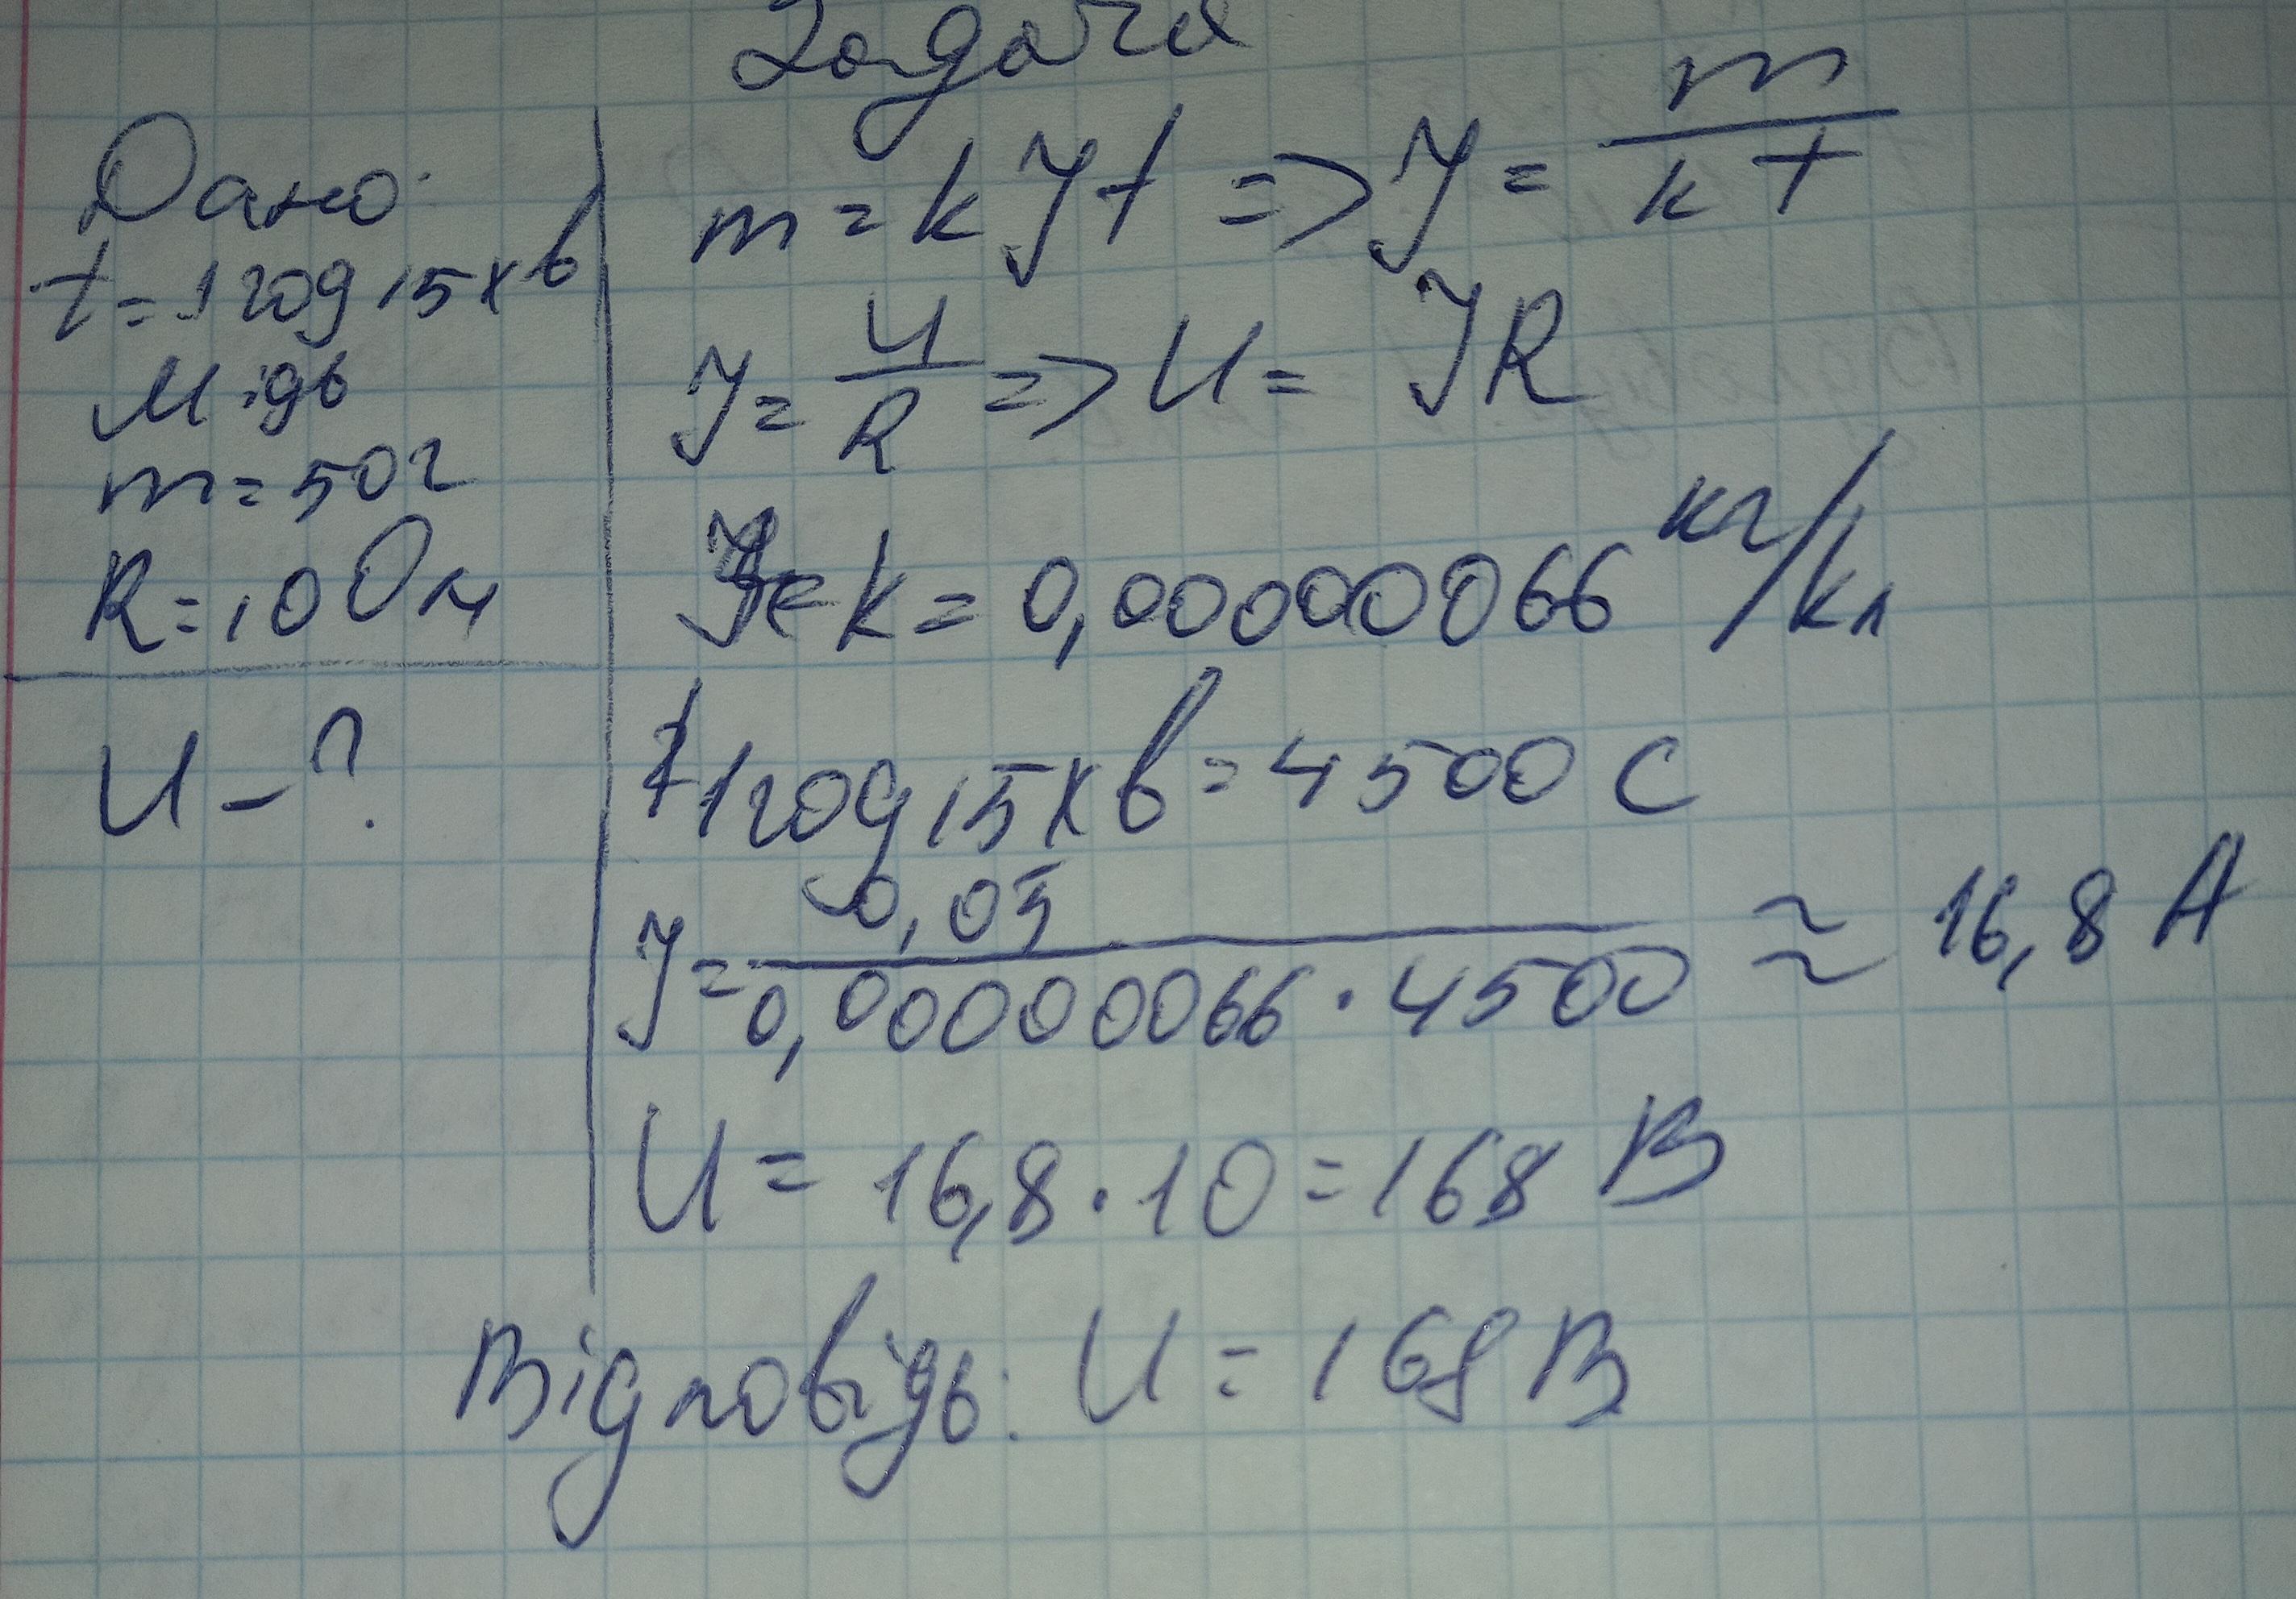 Задача
Дано:
t=1год 15хв
Мідь
m=50г
R=10Ом
U-?
m=kIt => I = m / kt
I = U/R => U = IR
k = 0,00000066 кг/Кл
1год 15хв = 4500 С
I = 0,05 / 0,00000066 · 4500 ≈ 16,8 А
U = 16,8 · 10 = 168 В
Відповідь: U = 168 В